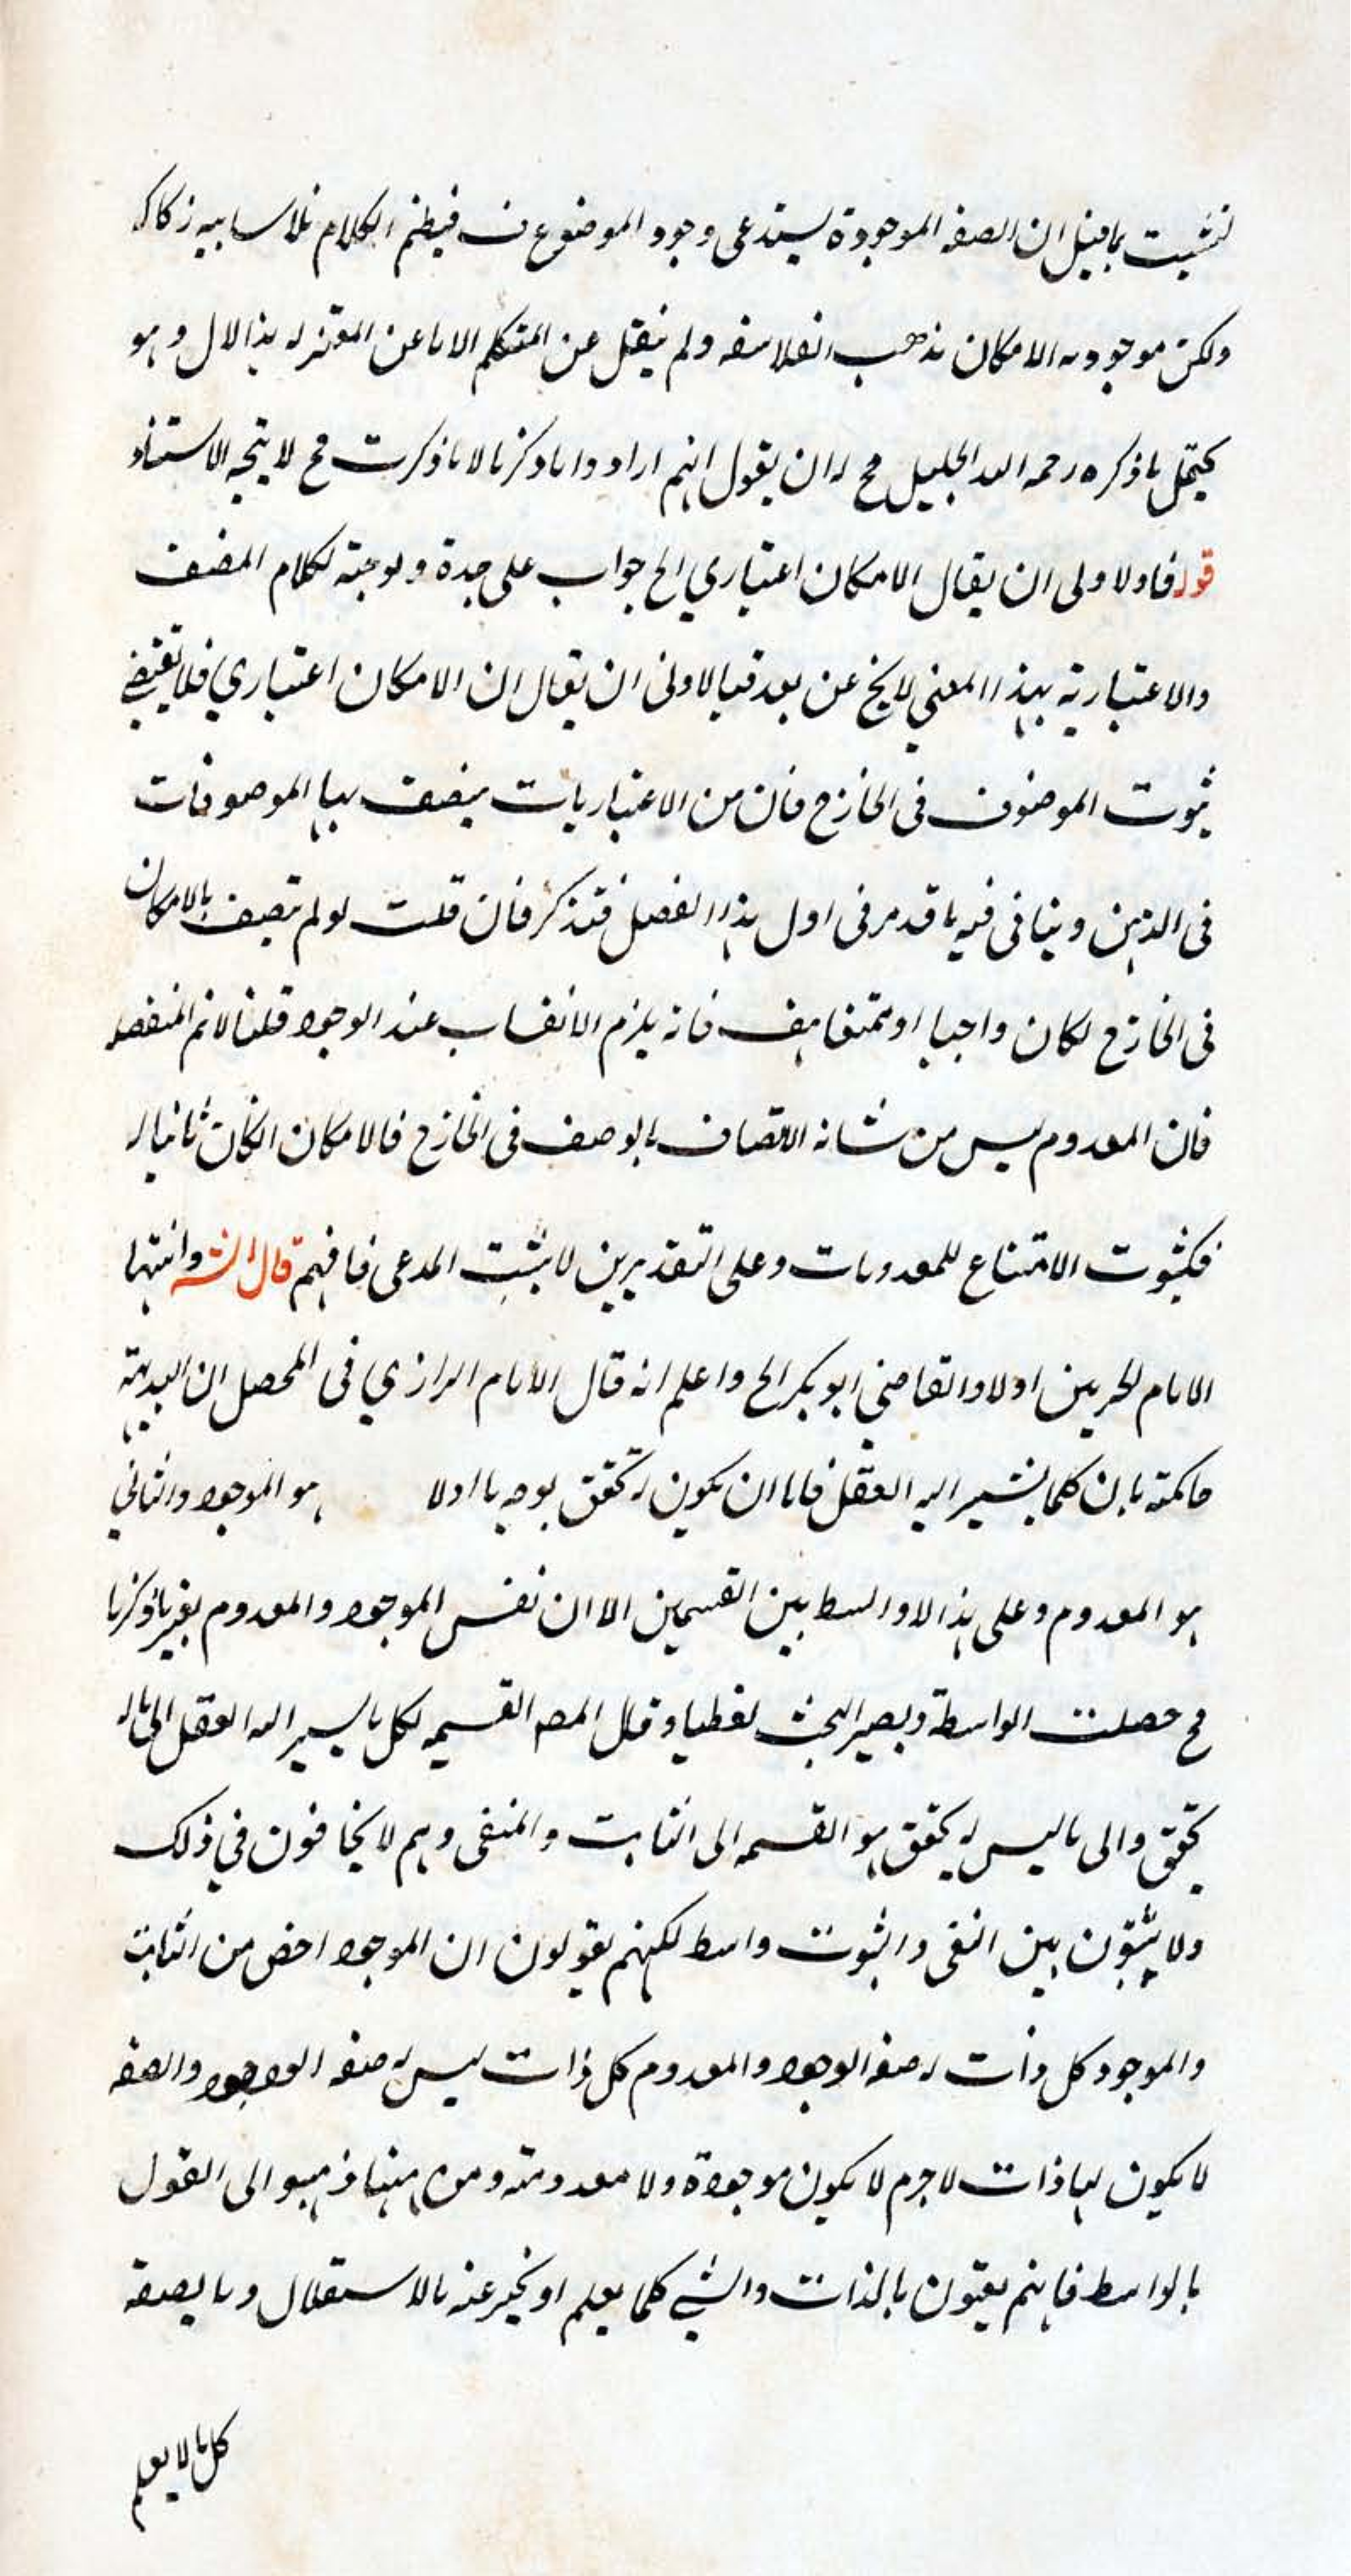 فيثبت بما قيل ان الصفه الموجودة يستدعى وجود الموضوع فيطم الكلام
ولكن موجوديه الامكان مذهب الفلاسفه ولم ينقل عن المتكلم الا ما عن المعتزله بذا الال وهو
يحتمل ما ذكره رحمه الله الجليل فح له ان يقول انهم ارادوا ما ذكرنا لا ما ذكرت فح لا يتجه الاستناد
قوله فالاولى ان يقال الامكان اعتباري الخ جواب على حدة وتوجيه لكلام المصنف
والاعتبارية بهذا المعنى لا يخ عن بعد فبالاولى ان يقال ان الامكان اعتباري فلا يقتضي
ثبوت الموصوف فى الخارج فان من الاعتباريات يتصف بها الموصوفات
فى الذهن وينافى فيه ما قد مر فى اول هذا الفصل فتذكر فان قلت لو لم يتصف بالامكان
فى الخارج لكان واجبا او ممتنعا هف فانه يلزم الانقلاب عند الوجود قلنا لانم المنفصله
فان المعدوم ليس من شانه الاتصاف بالوصف فى الخارج فالامكان انكان ثابتا له
فكثبوت الامتناع للمعدومات وعلى التقديرين لا يثبت المدعى فافهم قال الش واثبتها
الامام الحرمين اولا والقاضي ابو بكر الخ واعلم انه قال الامام الرازي فى المحصل ان البديهة
حاكمة بان كلما يشير اليه العقل فاما ان يكون له تحقق بوجه ما اولا هو الموجود والثانى
هو المعدوم وعلى هذا لا واسط بين القسمين الا ان نفس الموجود والمعدوم بغير ما ذكرنا
فح حصلت الواسطة ويصير البحث لفظيا وقال المص القسمه لكل ما يسير اليه العقل الى ما له
تحقق والى ما ليس له تحقق هو القسمه الى الثابت والمنفى وهم لا يخالفون في ذلك
ولا يثبتون بين النفى والثبوت واسط لكنهم يقولون ان الموجود اخص من الثابت
والموجود كل ذات له صفه الوجود والمعدوم كل ذات ليس له صفه الوجود والصفه
لا يكون لها ذات لا جرم لا يكون موجودة ولا معدومة ومن هنا ذهبوا الى القول
بالواسط فانهم يعنون بالذات والشي كلما يعلم او يخبر عنه بالاستقلال وبالصفة
كل ما لا يعلم